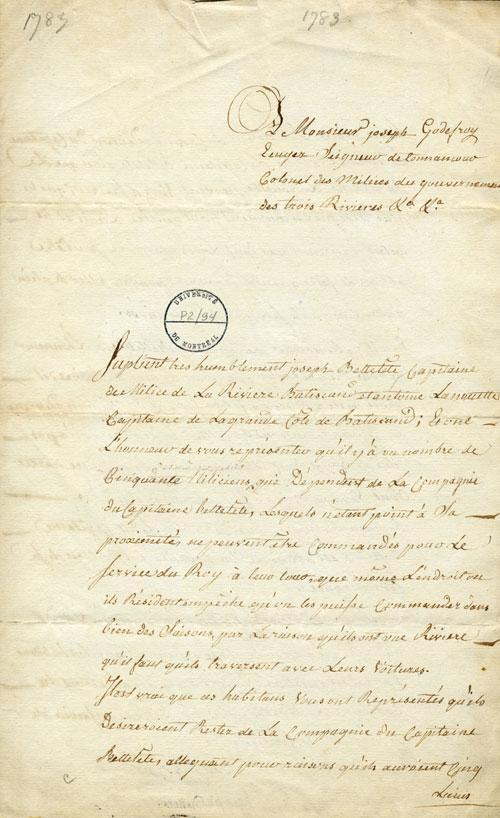 1783
1783
A Monsieur joseph Godefroy
Ecuyer Seigneur de tonnancour
Colonel des Milices du gouvernement
des trois Rivieres &a &a
UNIVERSITÉ
P2/94
DE MONTRÉAL
Suplient tres humblement joseph Bettetête Capitaine
de Milice de La Riviere Batiscand et antoine Lanouette
Capitaine de Lagrande Côte de Batiscand; Et ont
L'honneur de vous representer qu'il y à un nombre de
Cinquante Miliciens, que Dépendent de La Compagnie
du Capitaine bettetête, Lesquels n'etant point à Sa
proximité, ne peuvent être Commandés pour Le
Service du Roy à leur tour, que même L'endroit ou
ils Résident empêche qu'on les puisse Commander dans
bien des Saisons, par La raison qu'ils ont une Riviere
qu'il faut qu'ils traversent avec Leurs Voitures.
Il est vrai que ces habitans Vous ont Représentés qu'ils
Desireroient Rester de La Compagnie du Capitaine
Bettetête, alleguant pour raisons qu'ils auroient Cinq
Lieues